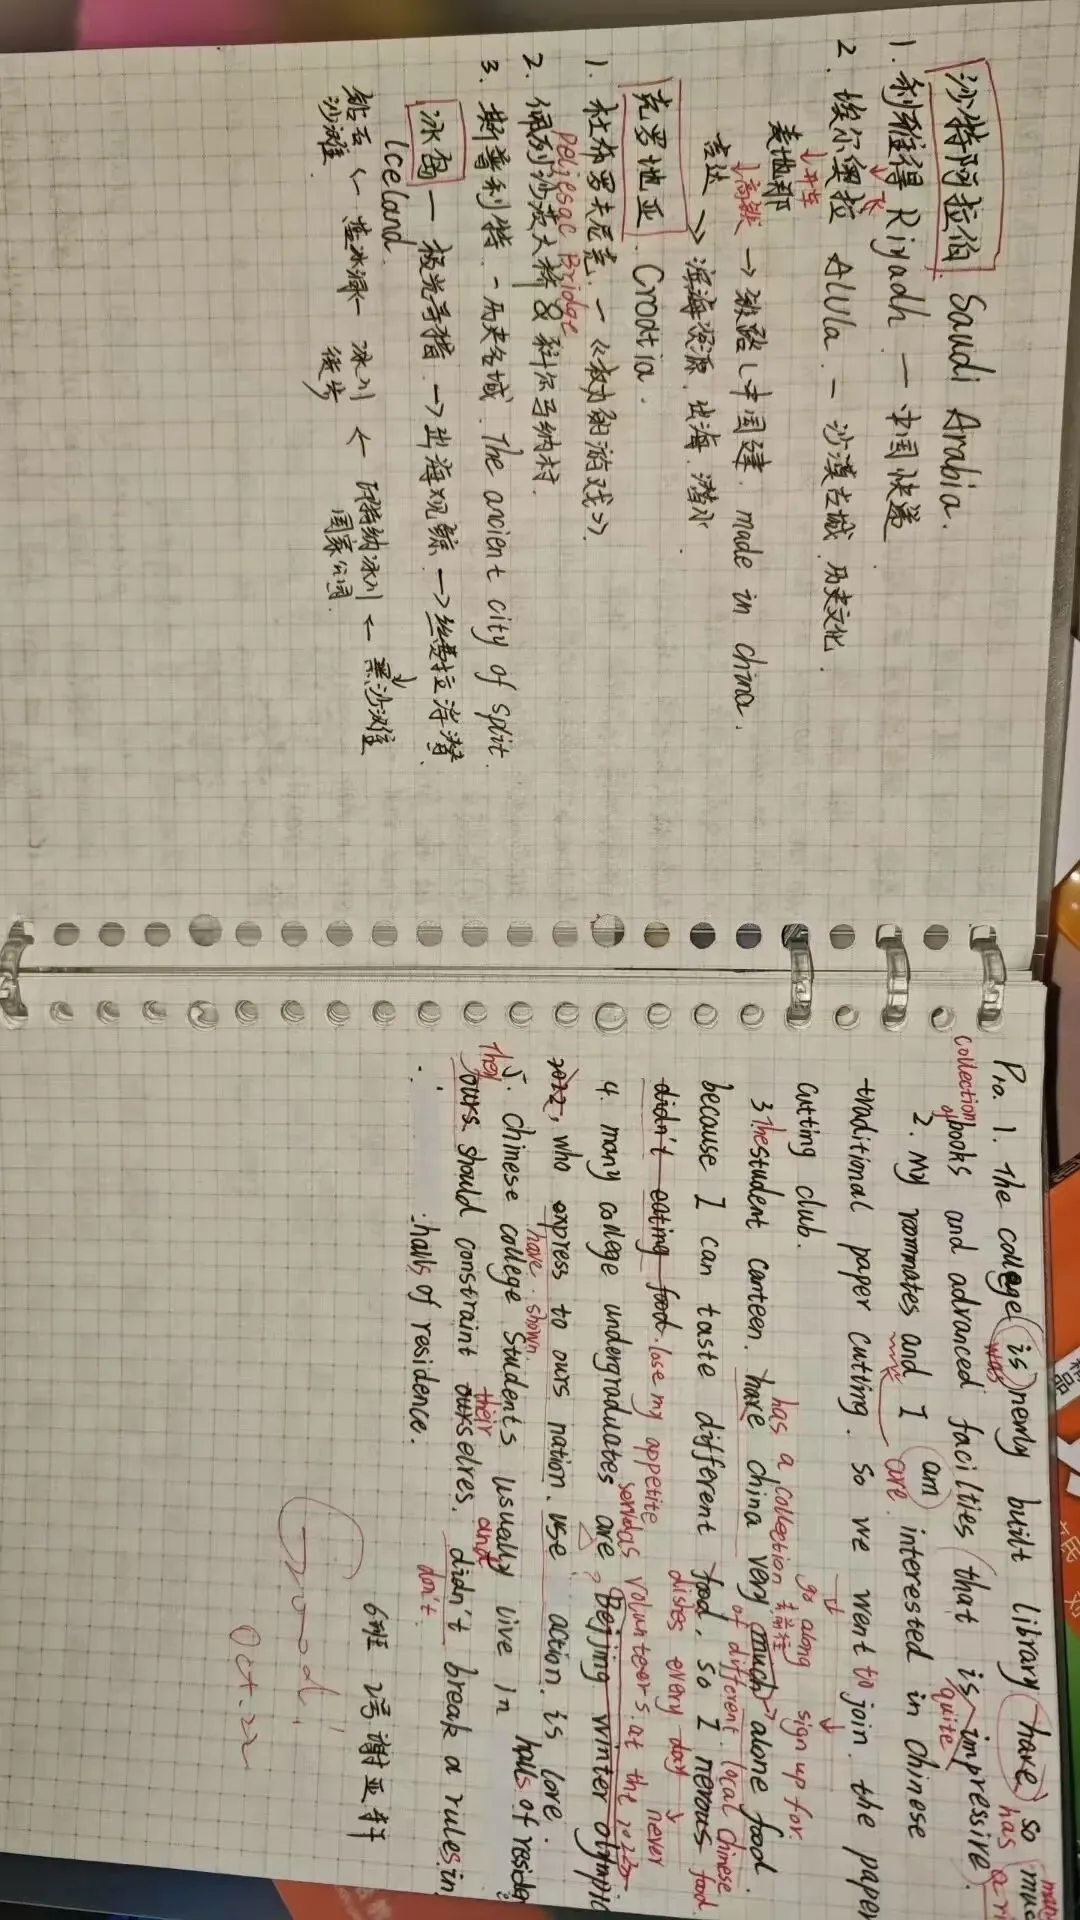 沙特阿拉伯 Saudi Arabia.
1. 利雅得 Riyadh — 中国快递
↓飞
2. 埃尔奥拉 AlUla. — 沙漠古城. 历史文化.
↓开车
麦地那
↓高铁 → 铁路(中国建. made in china.
吉达 >> 滨海资源. 出海. 潜水.
克罗地亚. Crodtia.
1. 杜布罗夫尼克. — 《权力的游戏》.
2. 佩列沙茨大桥 & 科尔马纳村.
peljesac Bridge
3. 斯普利特. - 历史名城. The ancient city of split.
冰岛 — 极光寻猎. → 出海观鲸. → 丝费拉浮潜.
Iceland.
钻石沙滩. ← 蓝冰洞 ← 冰川徒步 ← 瓦特纳冰川国家公园. ← 黑沙滩
P10. 1. The college is newly built library have so
was has a ri
collection of books and advanced facilities that is impressive.
quite
2. My roommates and I am interested in chinese
are
traditional paper cutting. so we went to join the paper
go along sign up for.
cutting club.
3 The student canteen. have china very much alone food.
has a collection of different local chinese food
because I can taste different food, so I nerous
distes every day never
didn't eating food. lose my appetite
4. many college undergraduates are Beijing winter olympic
volunteers at the 2022
2022, who express to ours nation. use action. is lore.
have shown.
5. chinese college students usually live in halls of residen
they ours should constraint ourselves. didn't break a rules in
their and don't
halls of residence.
6班 2号 谢亚轩
Good!
Oct. 22